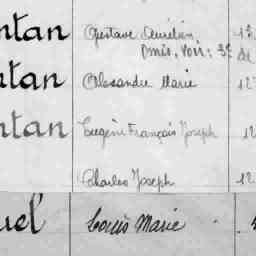 ntan Gustave Aurélien 12
Omis, Voir: 3e de
ntan Alexandre Marie 12
ntan Eugène François Joseph 12
Charles Joseph 12
uel Louis Marie